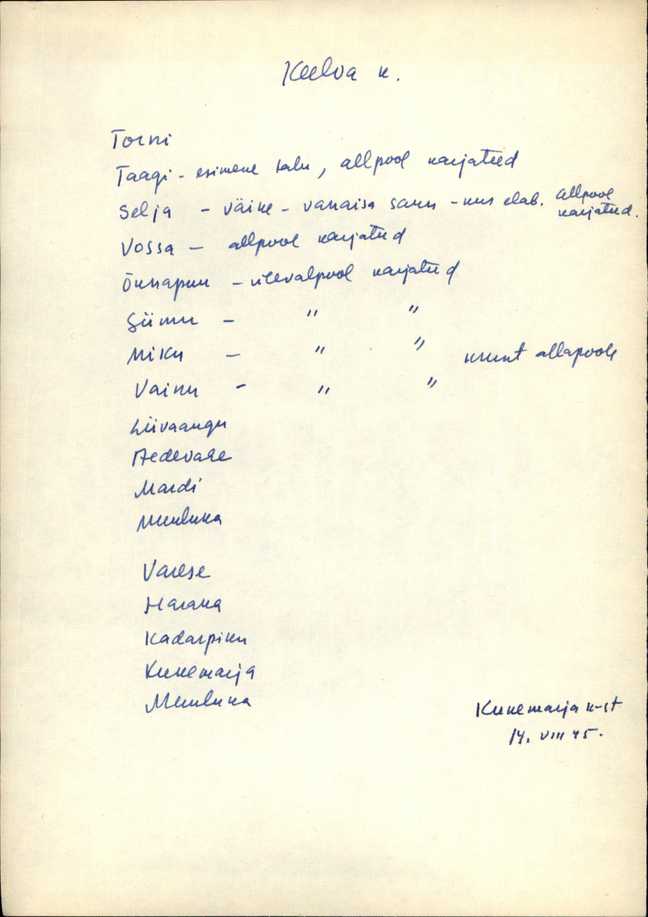 Keelva k.
Torni
Taagi - esimene talu, allpool karjateed
Selja - väike - vanaisa saun - kus elab. allpool karjateed.
Vossa - allpool karjateed
Õunapuu - ülevalpool karjateed
Siimu - " "
Miku - " " krunt allapoole
Vainu - " "
Liivaaugu
Aedevahe
Mardi
Muuluka
Varese
Haraka
Kadarpiku
Kukemarja
Muuluka
Kukemarja k-st
14. VIII 45.